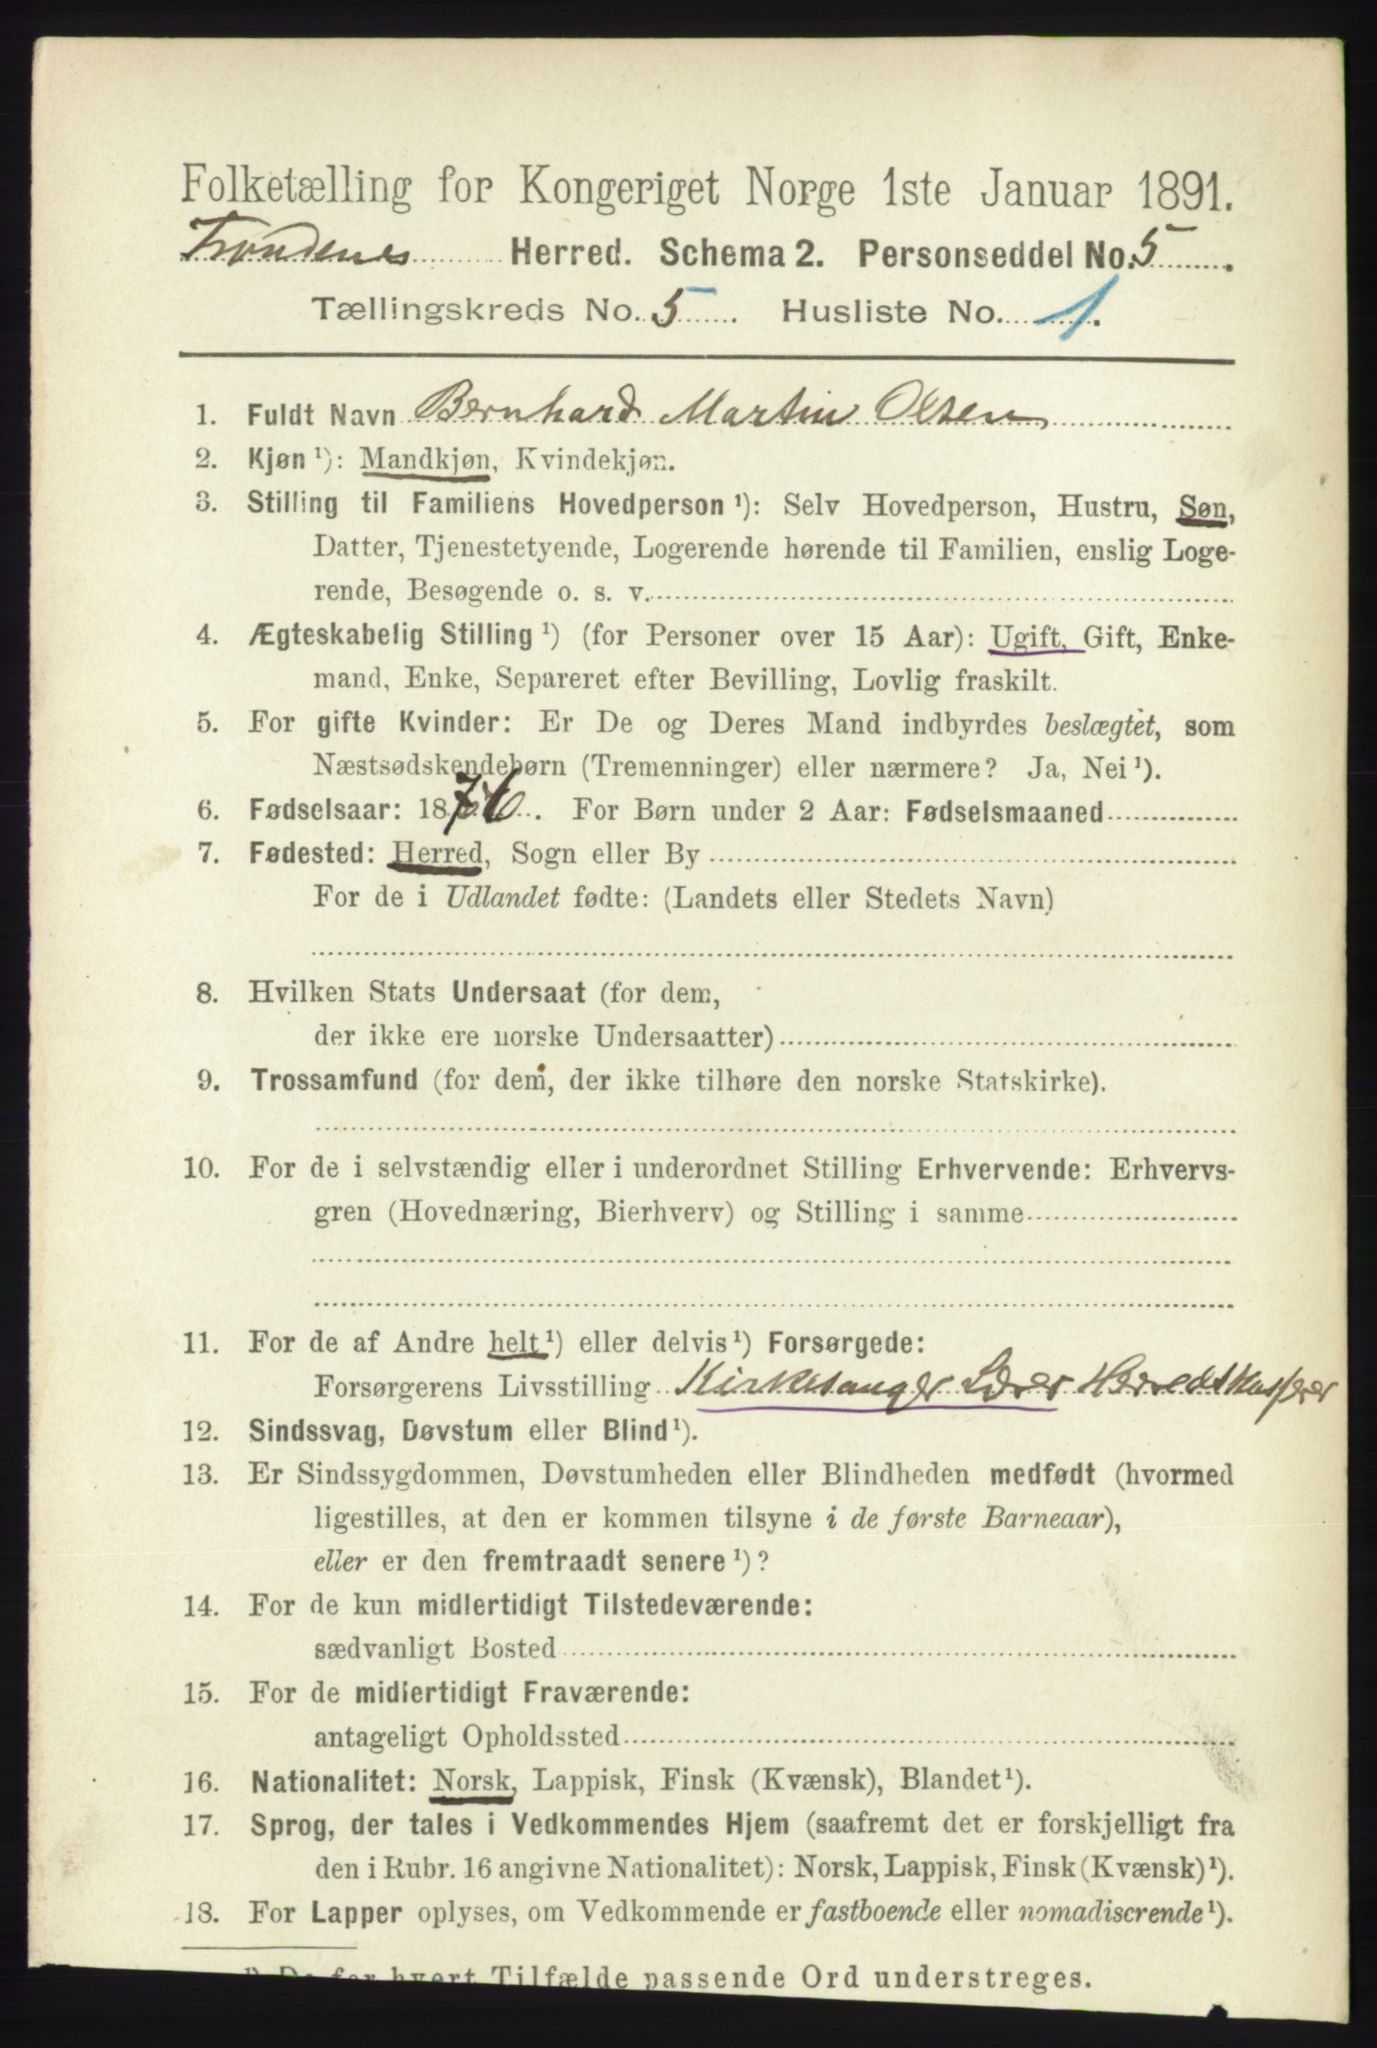 Folketælling for Kongeriget Norge 1ste Januar 1891.
Trondenes Herred. Schema 2. Personseddel No. 5.
Tællingskreds No. 5. Husliste No. 1.
1. Fuldt Navn Bernhard Martin Olsen
2. Kjøn ¹): Mandkjøn, Kvindekjøn.
3. Stilling til Familiens Hovedperson ¹): Selv Hovedperson, Hustru, Søn,
Datter, Tjenestetyende, Logerende hørende til Familien, enslig Loge-
rende, Besøgende o. s. v.
4. Ægteskabelig Stilling ¹) (for Personer over 15 Aar): Ugift, Gift, Enke-
mand, Enke, Separeret efter Bevilling, Lovlig fraskilt.
5. For gifte Kvinder: Er De og Deres Mand indbyrdes beslægtet, som
Næstsødskendebørn (Tremenninger) eller nærmere? Ja, Nei ¹).
6. Fødselsaar: 1876. For Børn under 2 Aar: Fødselsmaaned
7. Fødested: Herred, Sogn eller By
For de i Udlandet fødte: (Landets eller Stedets Navn)
8. Hvilken Stats Undersaat (for dem,
der ikke ere norske Undersaatter)
9. Trossamfund (for dem, der ikke tilhøre den norske Statskirke).
10. For de i selvstændig eller i underordnet Stilling Erhvervende: Erhvervs-
gren (Hovednæring, Bierhverv) og Stilling i samme
11. For de af Andre helt ¹) eller delvis ¹) Forsørgede:
Forsørgerens Livsstilling Kirkesanger Lærer Herredskasserer
12. Sindssvag, Døvstum eller Blind ¹).
13. Er Sindssygdommen, Døvstumheden eller Blindheden medfødt (hvormed
ligestilles, at den er kommen tilsyne i de første Barneaar),
eller er den fremtraadt senere ¹)?
14. For de kun midlertidigt Tilstedeværende:
sædvanligt Bosted
15. For de midlertidigt Fraværende:
antageligt Opholdssted
16. Nationalitet: Norsk, Lappisk, Finsk (Kvænsk), Blandet ¹).
17. Sprog, der tales i Vedkommendes Hjem (saafremt det er forskjelligt fra
den i Rubr. 16 angivne Nationalitet): Norsk, Lappisk, Finsk (Kvænsk) ¹).
18. For Lapper oplyses, om Vedkommende er fastboende eller nomadiserende ¹).
¹) De for hvert Tilfælde passende Ord understreges.